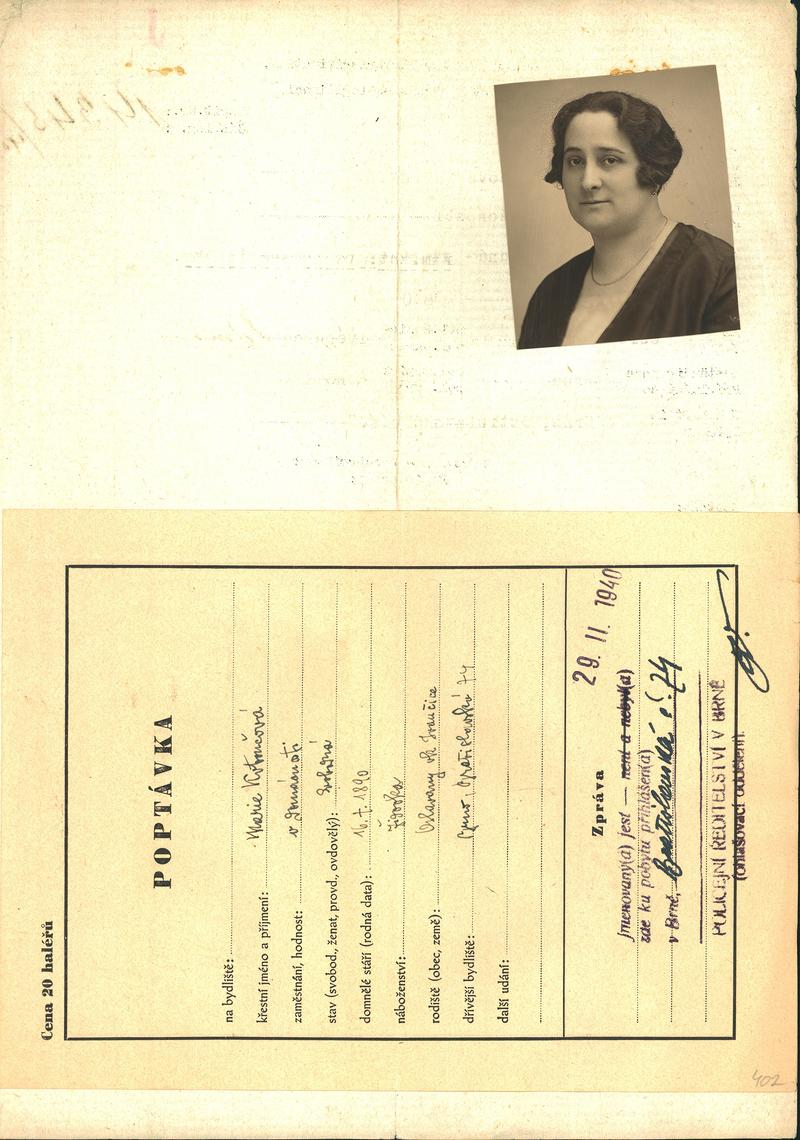 Cena 20 haléřů
POPTÁVKA
na bydliště:
křestní jméno a příjmení: Marie
zaměstnání, hodnost: v domácnosti
stav (svobod., ženat, provd., ovdovělý):
domnělé stáří (rodná data): 1890
náboženství: židovka
rodiště (obec, země): Oslavany ok. Ivančice
dřívější bydliště: Brno, Bratislavská 74
další udání:
Zpráva
29. 11. 1940
Jmenovaný(a) jest — není a nebyl(a)
zde ku pobytu přihlášen(a)
v Brně, Bratislavská č. 74
POLICEJNÍ ŘEDITELSTVÍ V BRNĚ
(ohlašovací oddělení).
402